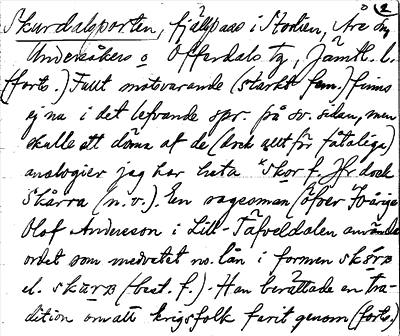 2
Skurdalsporten, fjällpass i Storlien, Åre sn,
Undersåkers o Offerdals tg, Jämtl. l.
(forts.) Fullt motsvarande (starkt fem.) finns
ej nu i det lefvande spr. på sv. sidan, men
skulle att döma af de (dock allt för fåtaliga)
analogier jag har heta *skor f. Jfr dock
Skårra (n.v.). En sagesman (Öfver
Olof Andersson i Lill-Täfveldalen använde
ordet som medvetet no. lån i formen
el. (best. f.). Han berättade en tra-
dition om att krigsfolk farit genom (forts.)